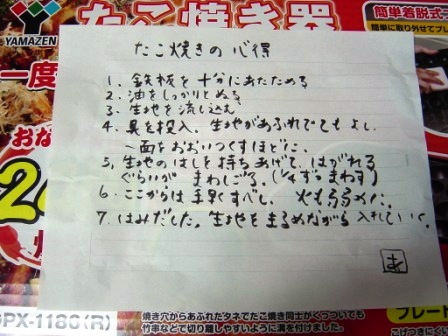 たこ焼き器
簡単着脱式
簡単に取り外せてプレ
YAMAZEN
一度
おな
たこ焼きの心得
1、鉄板を十分にあたためる
2、油をしっかりとぬる
3、生地を流し込む
4、具を投入。生地があふれてもよし。
一面をおおいつくすほどに。
5、生地のはしを持ちあげて、はがれる
ぐらいが まわしごろ。(1/4ずつまわす)
6、ここからは手早くすべし。火も弱るめに。
7、はみだした、生地をまるめながら 入れていく。
あ
GPX-1180(R)
焼き穴からあふれたタネでたこ焼き同士がくっついても
竹串などで切り離しやすいように溝を付けました。
プレー
こげつきにく